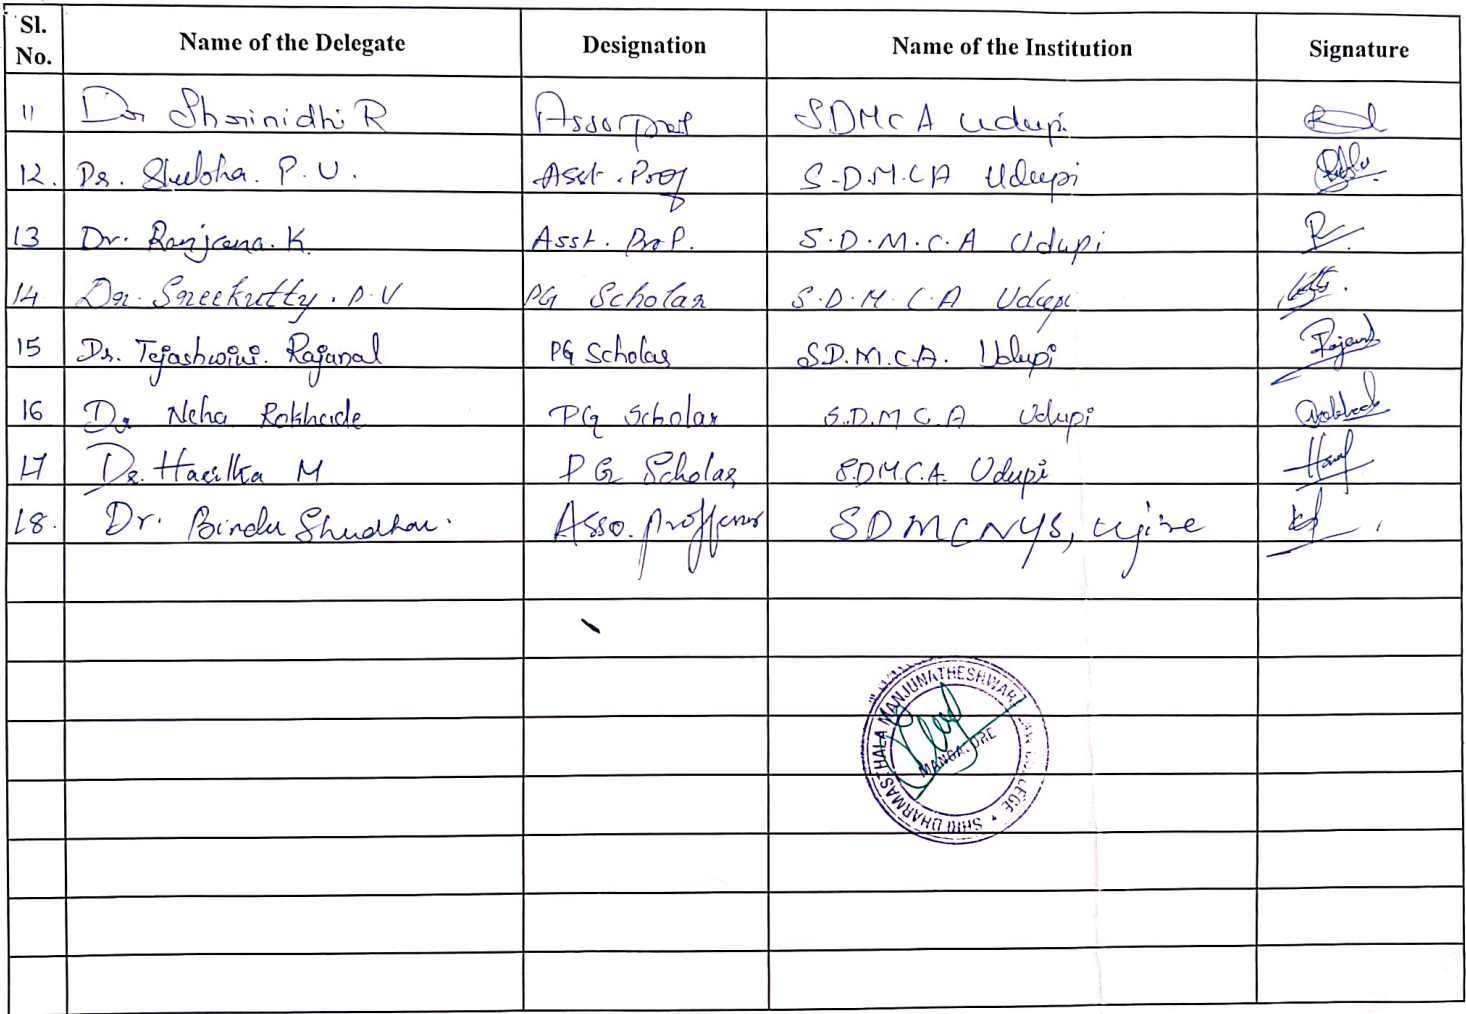 Sl. No. Name of the Delegate Designation Name of the Institution Signature
11 Dr Shrinidhi R Asso prof SDMCA Udupi
12. Dr. Shubha. P. U. Asst. Prof S.D.M.C.A Udupi
13 Dr. Ranjana. K Asst. Prof. S.D.M.C.A Udupi
14 Dr. Sreekutty. P.V PG Scholar S.D.M.C.A Udupi
15 Dr. Tejashwini. Rajanal PG Scholar S.D.M.C.A. Udupi
16 Dr Neha Rokhade PG Scholar S.D.M.C.A Udupi
17 Dr. M PG Scholar S.D.M.C.A. Udupi
18. Dr. Bindu Asso. proffessor SDMCNYS, Ujire
SHRI DHARMASTHALA MANJUNATHESHWARA LAW COLLEGE
MANGALORE